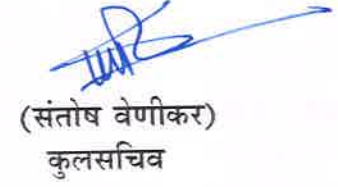 (संतोष वेणीकर)
कुलसचिव